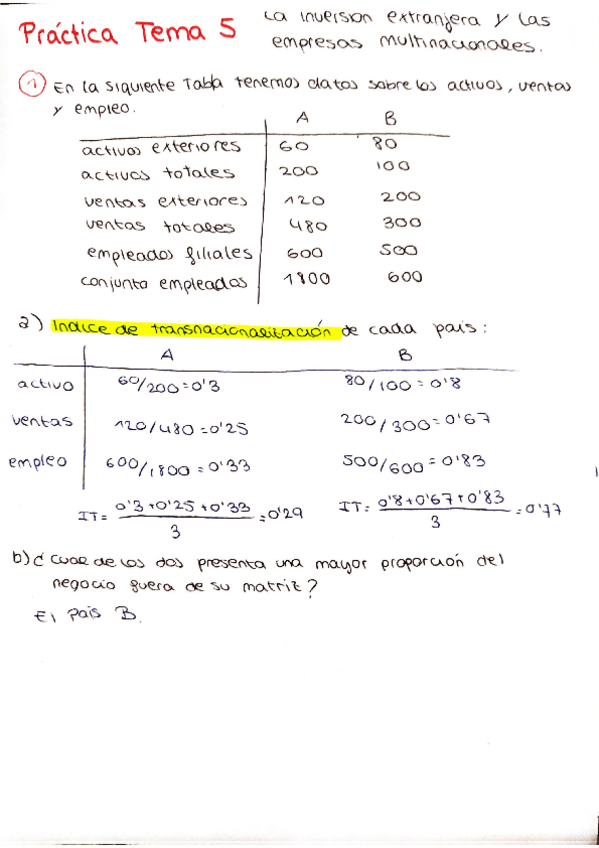 Práctica Tema 5
La inversion extranjera y las
empresas multinacionales.
1 En la siguiente Tabla tenemos datos sobre los activos, ventas
y empleo.
A B
activos exteriores 60 80
activos totales 200 100
ventas exteriores 120 200
ventas totales 480 300
empleados filiales 600 500
conjunto empleados 1800 600
a) Indice de transnacionalización de cada pais:
A B
activo 60/200=0'3 80/100=0'8
ventas 120/480=0'25 200/300=0'67
empleo 600/1800=0'33 500/600=0'83
IT= 0'3+0'25+0'33 / 3 =0'29 IT= 0'8+0'67+0'83 / 3 =0'77
b) ¿Cual de los dos presenta una mayor proporción del
negocio fuera de su matriz?
El pais B.